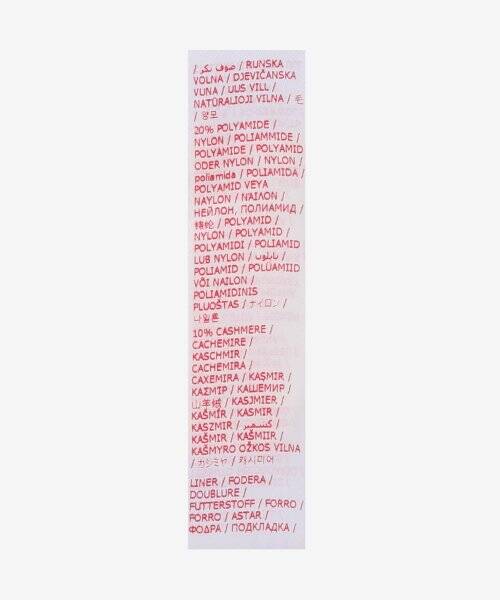 / صوف بكر / RUNSKA
VOLNA / DJEVIČANSKA
VUNA / UUS VILL /
NATŪRALIOJI VILNA / 毛
/ 양모
20% POLYAMIDE /
NYLON / POLIAMMIDE /
POLYAMIDE / POLYAMID
ODER NYLON / NYLON /
poliamida / POLIAMIDA /
POLYAMID VEYA
NAYLON / ΝΑΪΛΟΝ /
НЕЙЛОН, ПОЛИАМИД /
锦纶 / POLYAMID /
NYLON / POLYAMID /
POLYAMIDI / POLIAMID
LUB NYLON / نايلون /
POLIAMID / POLÜAMIID
VÕI NAILON /
POLIAMIDINIS
PLUOŠTAS / ナイロン /
나일론
10% CASHMERE /
CACHEMIRE /
KASCHMIR /
CACHEMIRA /
CAXEMIRA / KAŞMIR /
ΚΑΣΜΙΡ / КАШЕМИР /
山羊绒 / KASJMIER /
KAŠMÍR / KASMIR /
KASZMIR / كشمير /
KAŠMIR / KAŠMIIR /
KAŠMYRO OŽKOS VILNA
/ カシミヤ / 캐시미어
LINER / FODERA /
DOUBLURE /
FUTTERSTOFF / FORRO /
FORRO / ASTAR /
ΦΟΔΡΑ / ПОДКЛАДКА /